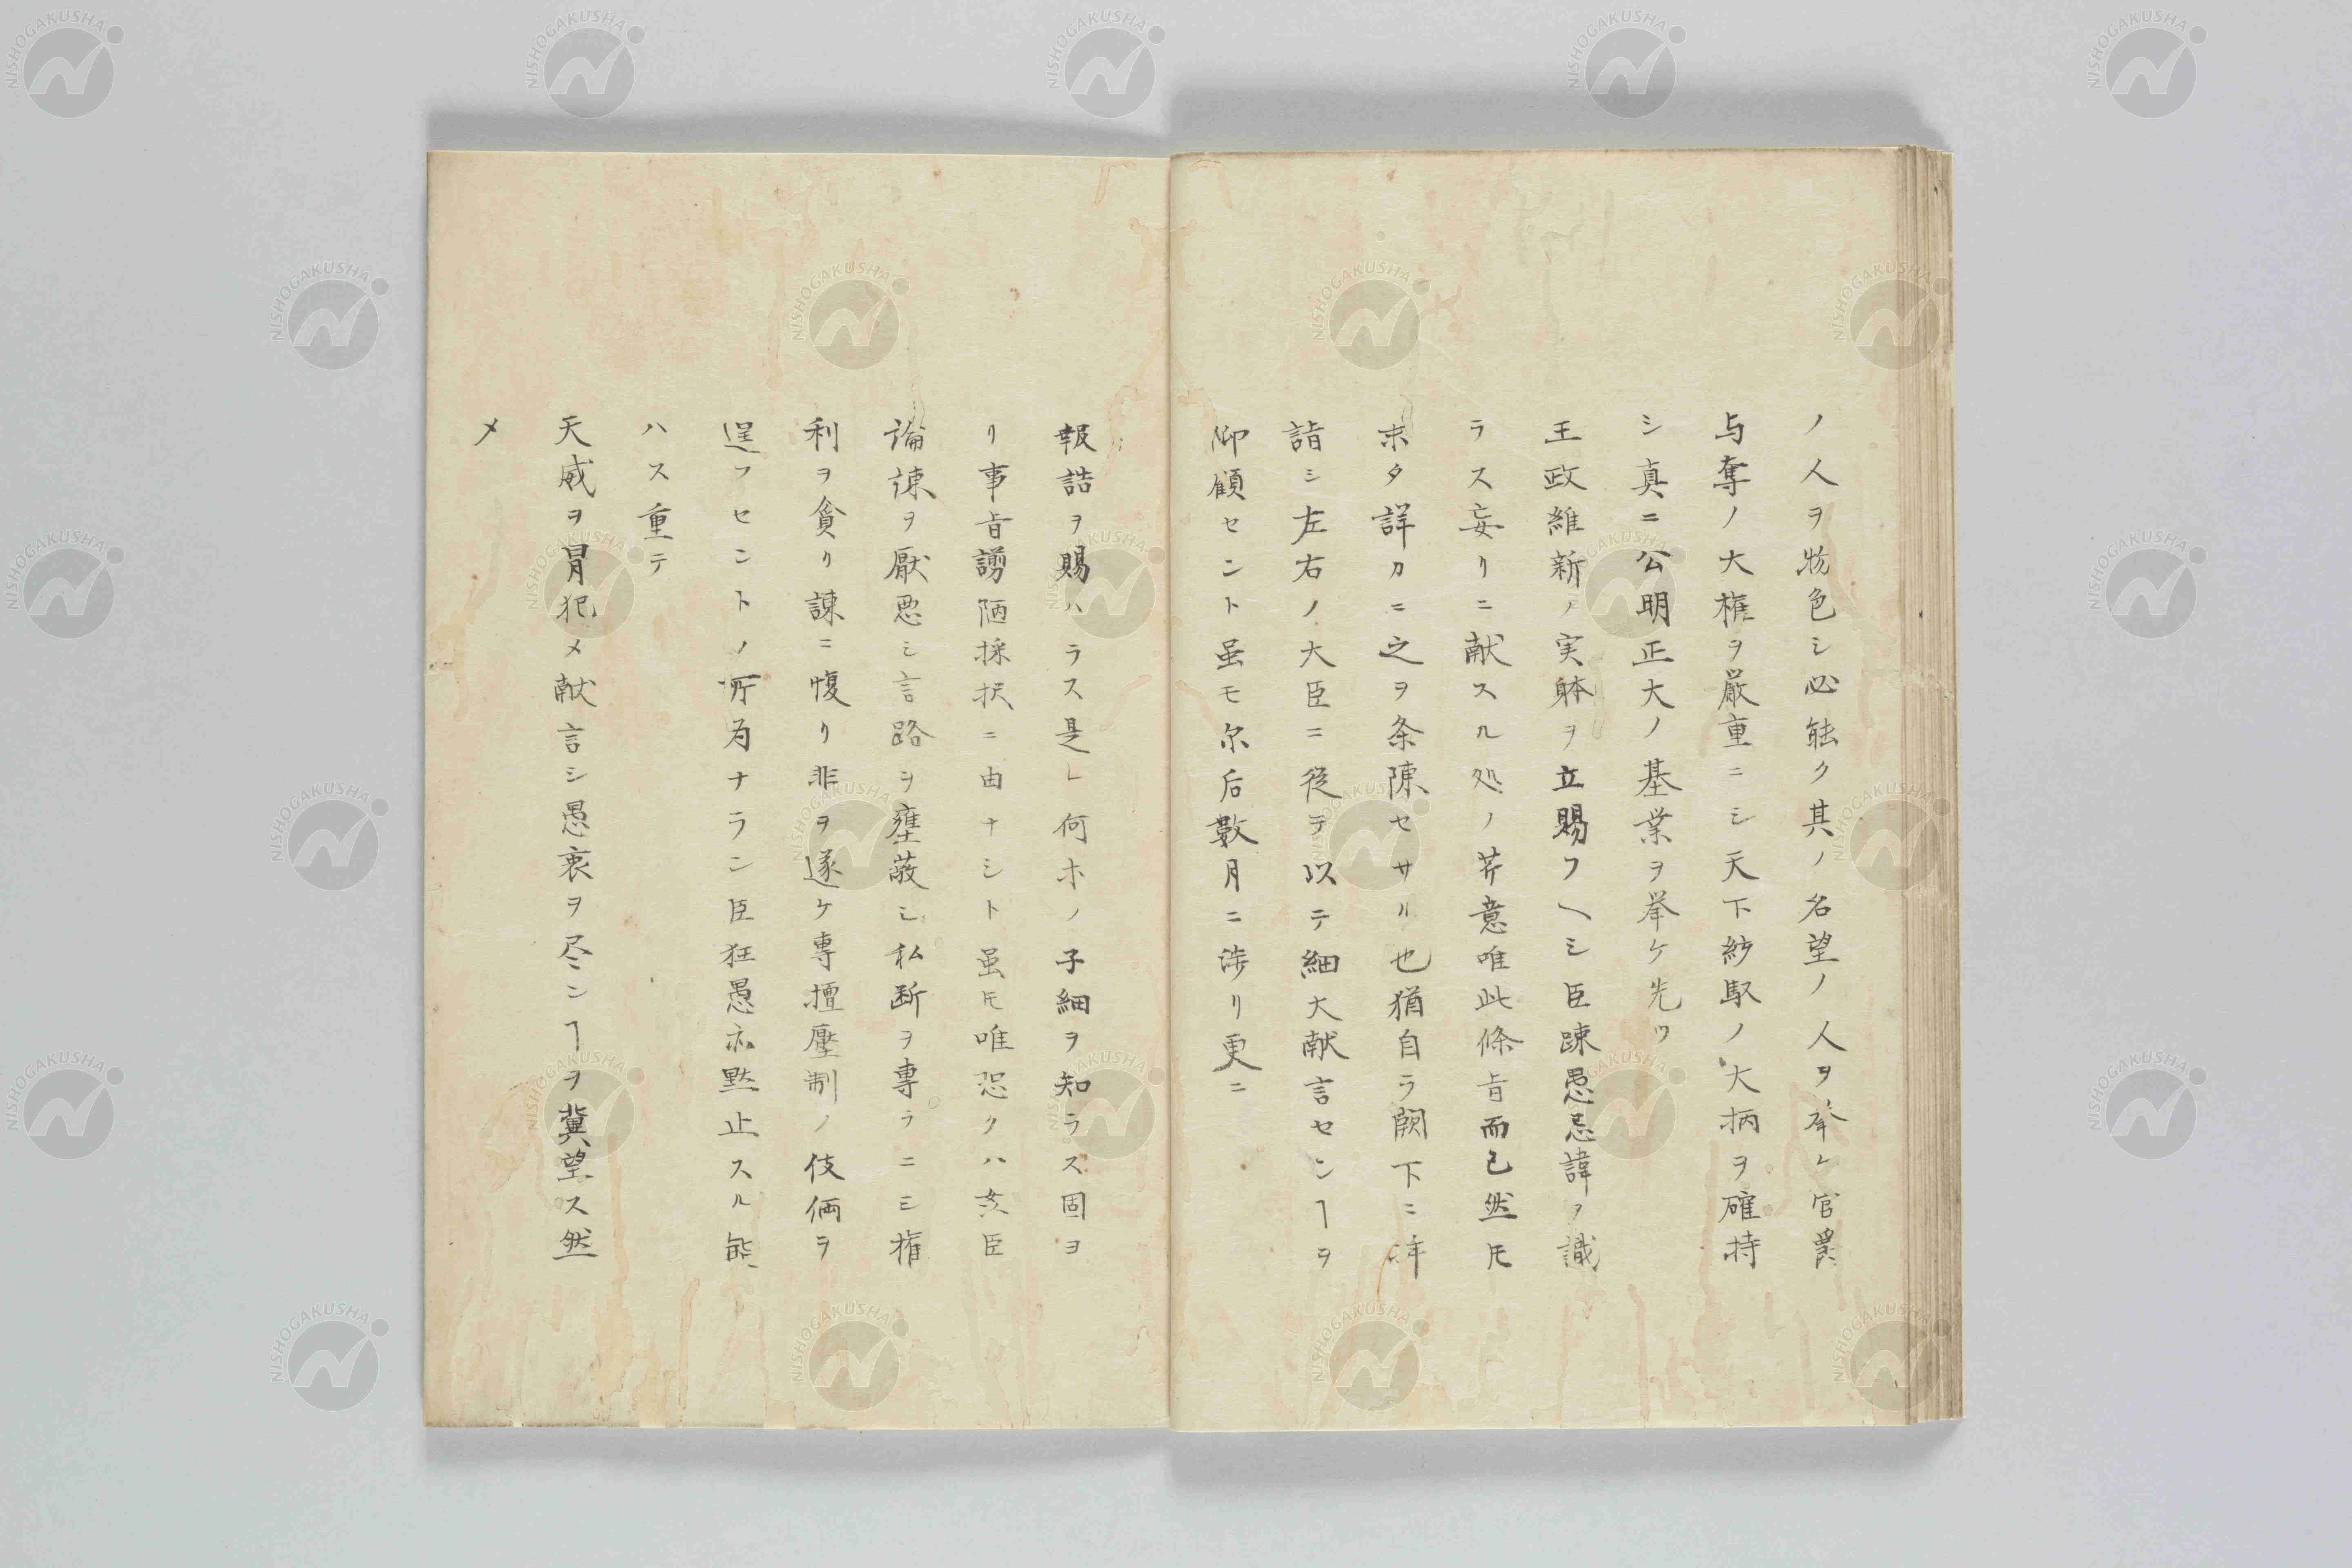 ノ人ヲ物色シ必能ク其ノ名望ノ人ヲ挙レ官爵
与奪ノ大権ヲ厳重ニシ天下紗馭ノ大柄ヲ確持
シ真ニ公明正大ノ基業ヲ挙ケ先ツ
王政維新ノ実躰ヲ立賜フヘシ臣踈愚忌諱ヲ識
ラス妄リニ献スル処ノ芹意唯此條旨而已然㞮
未タ詳カニ之ヲ条陳セサル也猶自ラ闕下ニ拝
詣シ左右ノ大臣ニ従テ以テ細大献言センヿヲ
仰願セント虽モ尓后数月ニ渉リ更ニ
報誥ヲ賜ハラス是レ何ホノ子細ヲ知ラス固ヨ
リ事旨謭陋採択ニ由ナシト虽㞮唯恐クハ炎臣
論諌ヲ厭悪シ言路ヲ壅蔽シ私断ヲ專ラニシ権
利ヲ貪リ諌ニ愎リ非ヲ遂ケ專擅壓制ノ伎倆ヲ
逞フセントノ所為ナラン臣狂愚亦黙止スル能
ハス重テ
天威ヲ冒犯メ献言シ愚衷ヲ尽ンヿヲ冀望ス然
メ
NISHOGAKUSHA